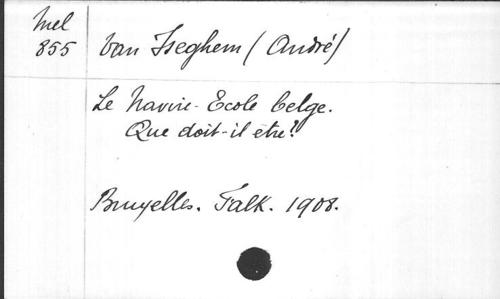 Mel
855
Van Iseghem (André)
Le Navire-Ecole belge.
Que doit-il être?
Bruxelles. Falk. 1908.